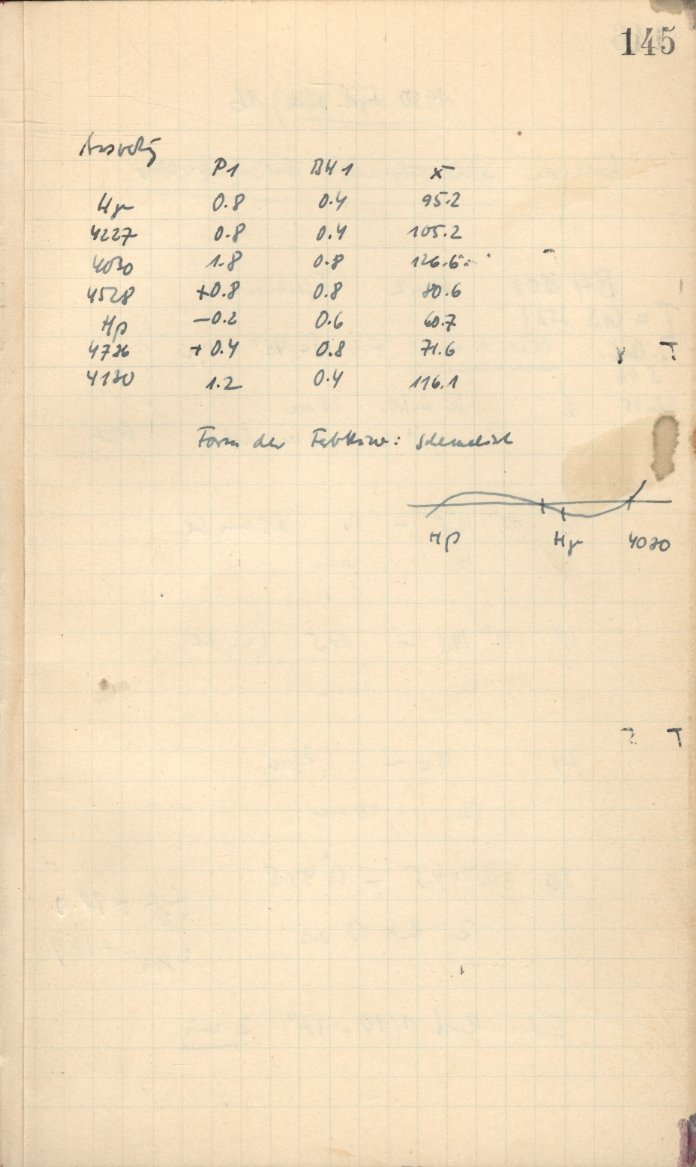 145
P1 BH1 x
Hγ 0.8 0.4 95.2
4227 0.8 0.4 105.2
4030 1.8 0.8 126.6
4528 +0.8 0.8 80.6
Hβ −0.2 0.6 60.7
4736 +0.4 0.8 71.6
4130 1.2 0.4 116.1
Form der schematisch
Hβ Hγ 4030